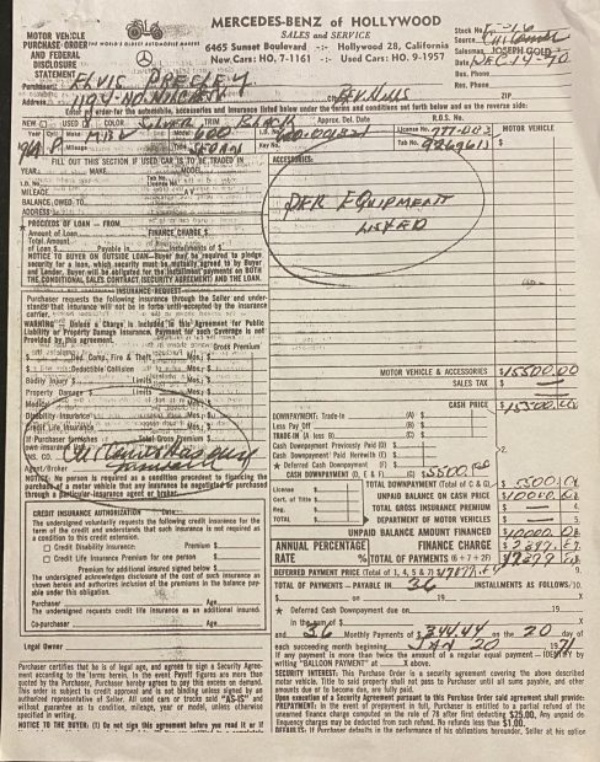 MERCEDES-BENZ of HOLLYWOOD
SALES and SERVICE
6465 Sunset Boulevard -:- Hollywood 28, California
New Cars: HO. 7-1161 -:- Used Cars: HO. 9-1957
MOTOR VEHICLE
PURCHASE ORDER
AND FEDERAL
DISCLOSURE
STATEMENT
THE WORLD'S OLDEST AUTOMOBILE MAKERS
Stock No.
Source
Salesman JOSEPH GOLD
Date DEC 14-70
Bus. Phone
Res. Phone
Purchaser: ELVIS PRESLEY
Address 1174 NO. City BEV HILLS ZIP
Enter my order for the automobile, accessories and insurance listed below under the terms and conditions set forth below and on the reverse side:
NEW USED COLOR SILVER TRIM BLACK Approx. Del. Date R.O.S. No.
Year Cyl. Make Model 600 License No.
Mileage Type SEDAN Key No. Tab No. MOTOR VEHICLE
FILL OUT THIS SECTION IF USED CAR IS TO BE TRADED IN
ACCESSORIES:
YEAR MAKE MODEL
MILEAGE
BALANCE OWED TO
ADDRESS
PER EQUIPMENT
LISTED
★ PROCEEDS OF LOAN — FROM
Amount of Loan FINANCE CHARGE $
Total Amount
of Loan $ Payable in Installments of $
NOTICE TO BUYER ON OUTSIDE LOAN—Buyer may be required to pledge
security for a loan, which security must be mutually agreed to by Buyer
and Lender. Buyer will be obligated for the installment payments on BOTH
THE CONDITIONAL SALES CONTRACT (SECURITY AGREEMENT) AND THE LOAN.
INSURANCE REQUEST
Purchaser requests the following insurance through the Seller and under-
stands that insurance will not be in force until accepted by the insurance
carrier.
WARNING — Unless a Charge is Included in this Agreement for Public
Liability or Property Damage Insurance, Payment for such Coverage is not
Provided by this agreement.
Gross Premium
$ Ded. Comp, Fire & Theft Mos.; $
$ Deductible Collision Mos.; $
Bodily Injury $ Limits Mos.; $
Property Damage $ Limits Mos.; $
Medical Mos.; $
Disability Insurance Mos.; $
Credit Life Insurance Mos.; $
If Purchaser furnishes Total Gross Premium $
own insurance list:
INS. CO.
Agent/Broker
NOTICE: No person is required as a condition precedent to financing the
purchase of a motor vehicle that any insurance be negotiated or purchased
through a particular insurance agent or broker.
MOTOR VEHICLE & ACCESSORIES $15500.00
SALES TAX $ —
CASH PRICE $15500.00
DOWNPAYMENT: Trade-In (A) $
Less Pay Off (B) $
TRADE-IN (A less B) (C) $
Cash Downpayment Previously Paid (D) $
Cash Downpayment Paid Herewith (E) $
★ Deferred Cash Downpayment (F) $
CASH DOWNPAYMENT (D, E & F) (G) $5500.00
TOTAL DOWNPAYMENT (Total of C & G) $5500.00
UNPAID BALANCE ON CASH PRICE $10000.00
TOTAL GROSS INSURANCE PREMIUM $ —
DEPARTMENT OF MOTOR VEHICLES $ —
UNPAID BALANCE AMOUNT FINANCED $10000.00
License $
Cert. of Title $
Reg. $
TOTAL $
ANNUAL PERCENTAGE
RATE %
FINANCE CHARGE $
TOTAL OF PAYMENTS (6 + 7 = 8)
DEFERRED PAYMENT PRICE (Total of 1, 4, 5 & 7)
TOTAL OF PAYMENTS — PAYABLE IN 36 INSTALLMENTS AS FOLLOWS:
$ on 19
★ Deferred Cash Downpayment due on 19
in the sum of $
and 36 Monthly Payments of $344.44 on the 20 day of
each succeeding month beginning JAN 20 1971
If any payment is more than twice the amount of a regular equal payment — IDENTIFY by
writing "BALLOON PAYMENT" at X above.
CREDIT INSURANCE AUTHORIZATION Date
The undersigned voluntarily requests the following credit insurance for the
term of the credit and understands that such insurance is not required as
a condition to this credit extension.
☐ Credit Disability Insurance: Premium $
☐ Credit Life Insurance Premium for one person $
Premium for additional insured signed below $
The undersigned acknowledges disclosure of the cost of such insurance as
shown herein and authorizes inclusion of the premiums in the balance pay-
able under this obligation.
Purchaser Age
The undersigned requests credit life insurance as an additional insured.
Co-purchaser Age
Legal Owner
Purchaser certifies that he is of legal age, and agrees to sign a Security Agree-
ment according to the terms herein. In the event Payoff figures are more than
quoted by the Purchaser, Purchaser hereby agrees to pay this excess on demand.
This order is subject to credit approval and is not binding unless signed by an
authorized representative of Seller. All used cars or trucks sold "AS-IS" and
without guarantee as to condition, mileage, year or model, unless otherwise
specified in writing.
NOTICE TO THE BUYER: (1) Do not sign this agreement before you read it or if
SECURITY INTEREST: This Purchase Order is a security agreement covering the above described
motor vehicle. Title to said property shall not pass to Purchaser until all sums payable, and other
amounts due or to become due, are fully paid.
Upon execution of a Security Agreement pursuant to this Purchase Order said agreement shall provide:
PREPAYMENT: In the event of prepayment in full, Purchaser is entitled to a partial refund of the
unearned finance charge computed on the rule of 78 after first deducting $25.00. Any unpaid de-
linquency charges may be deducted from such refund. No refunds less than $1.00.
DEFAULTS: If Purchaser defaults in the performance of his obligations hereunder, Seller at his option